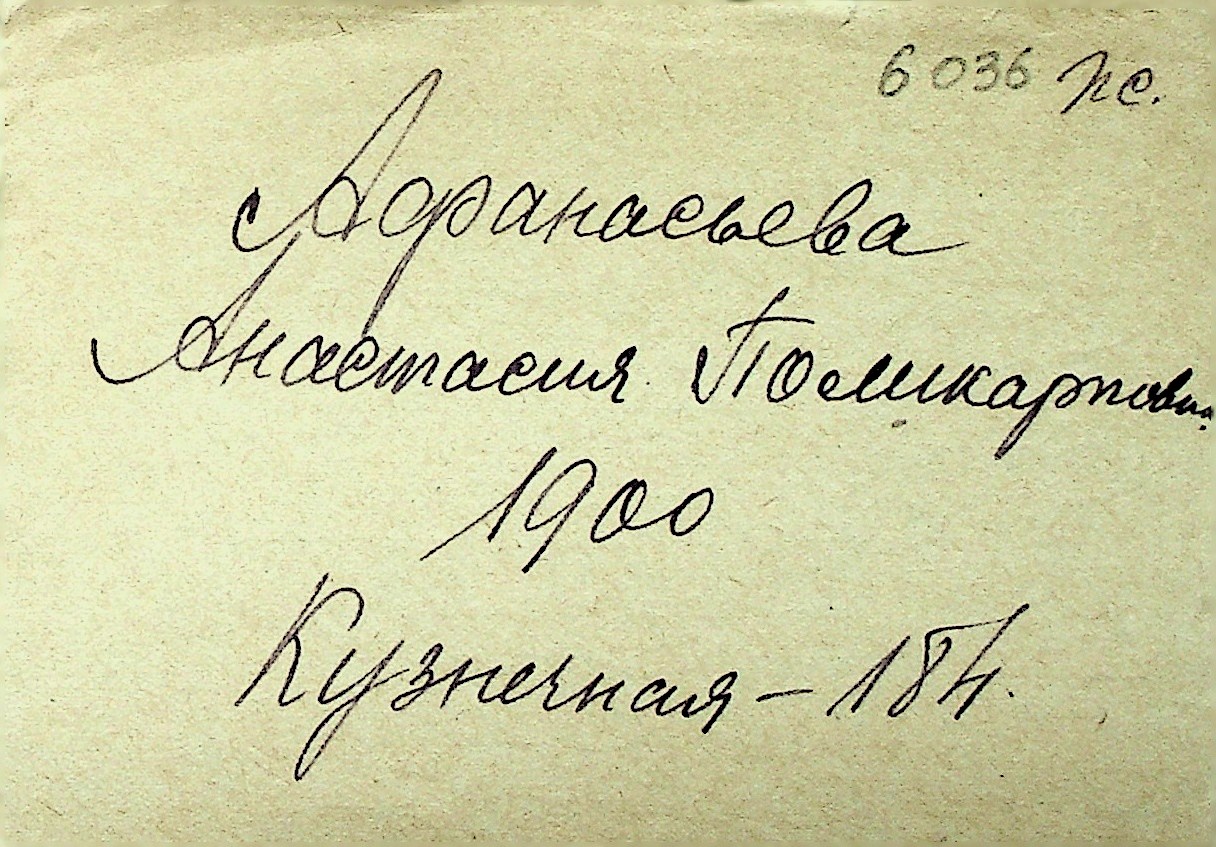 6036 пс.
Афанасьева
Анастасия Поликарповна.
1900
Кузнечная - 184.